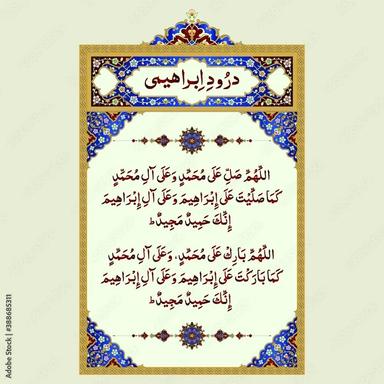 درودِ اِبراهیمی
اَللّٰهُمَّ صَلِّ عَلَى مُحَمَّدٍ وَعَلَى آلِ مُحَمَّدٍ
كَمَا صَلَّيْتَ عَلَى إِبْرَاهِيمَ وَعَلَى آلِ إِبْرَاهِيمَ
إِنَّكَ حَمِيدٌ مَجِيدٌ ؕ
اَللّٰهُمَّ بَارِكْ عَلَى مُحَمَّدٍ، وَعَلَى آلِ مُحَمَّدٍ
كَمَا بَارَكْتَ عَلَى إِبْرَاهِيمَ وَعَلَى آلِ إِبْرَاهِيمَ
إِنَّكَ حَمِيدٌ مَجِيدٌ ؕ
Adobe Stock | #388685311